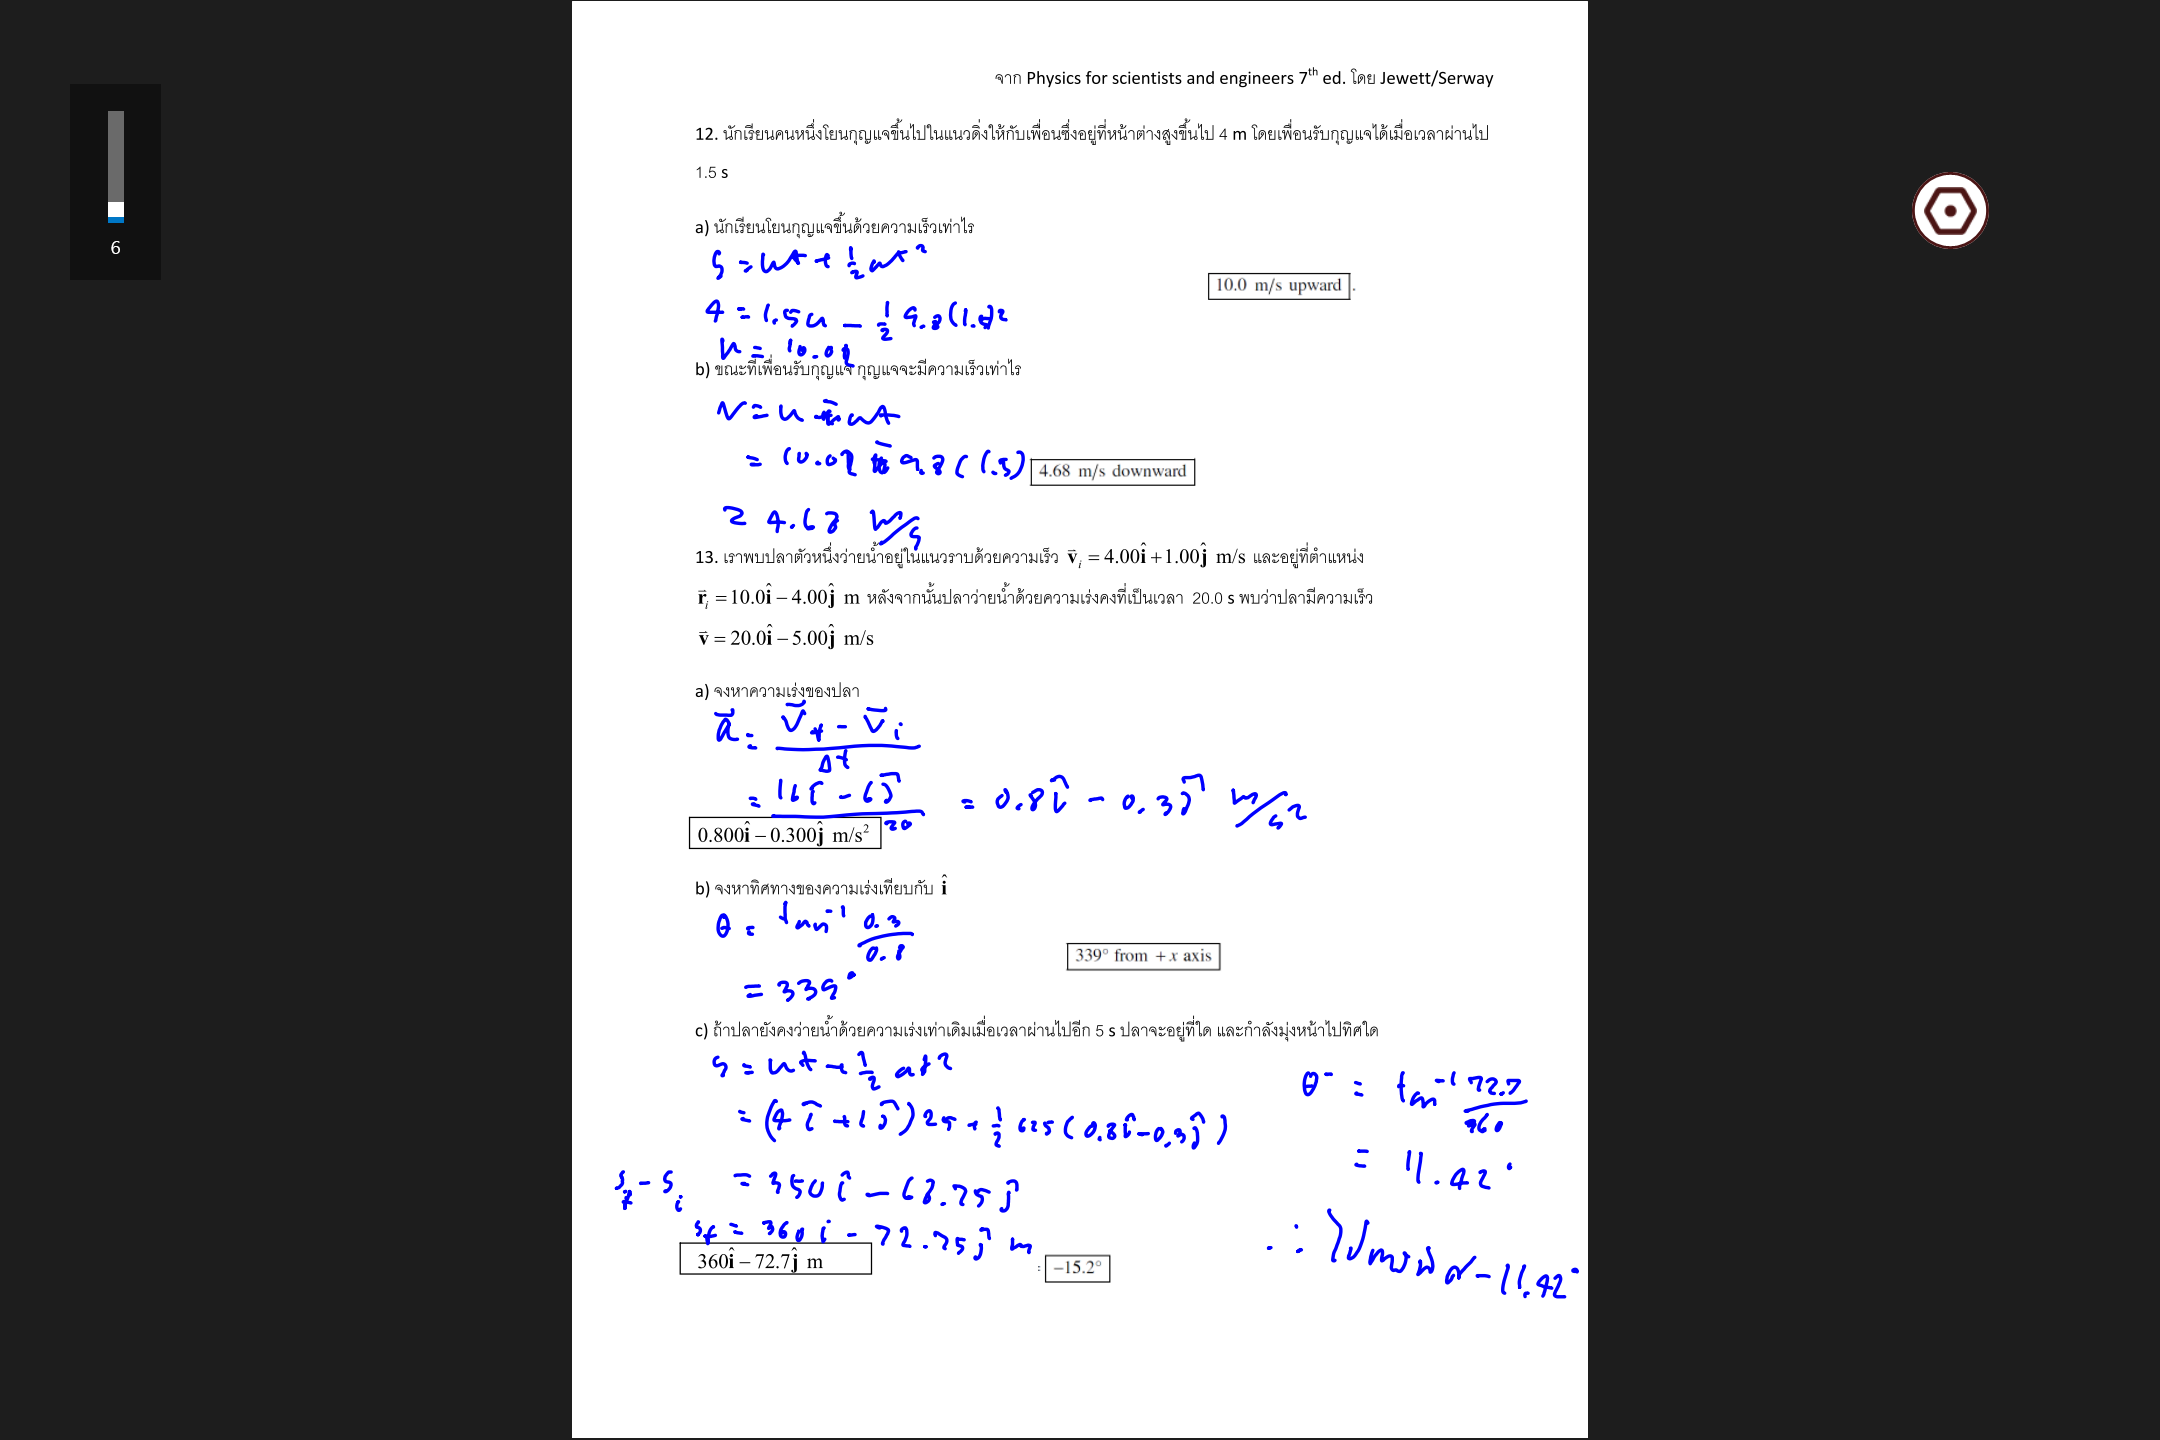 จาก Physics for scientists and engineers 7th ed. โดย Jewett/Serway
12. นักเรียนคนหนึ่งโยนกุญแจขึ้นไปในแนวดิ่งให้กับเพื่อนซึ่งอยู่ที่หน้าต่างสูงขึ้นไป 4 m โดยเพื่อนรับกุญแจได้เมื่อเวลาผ่านไป
1.5 s
6
a) นักเรียนโยนกุญแจขึ้นด้วยความเร็วเท่าไร
s = ut + 1/2 at²
10.0 m/s upward.
4 = 1.5u - 1/2 9.8(1.5)²
u = 10.02
b) ขณะที่เพื่อนรับกุญแจ กุญแจจะมีความเร็วเท่าไร
v = u - at
= 10.02 - 9.8(1.5)
4.68 m/s downward
= 4.68 m/s
13. เราพบปลาตัวหนึ่งว่ายน้ำอยู่ในแนวราบด้วยความเร็ว v⃗i = 4.00î + 1.00ĵ m/s และอยู่ที่ตำแหน่ง
r⃗i = 10.0î − 4.00ĵ m หลังจากนั้นปลาว่ายน้ำด้วยความเร่งคงที่เป็นเวลา 20.0 s พบว่าปลามีความเร็ว
v⃗ = 20.0î − 5.00ĵ m/s
a) จงหาความเร่งของปลา
a⃗ = (v⃗f - v⃗i)/Δt
= (16î - 6ĵ)/20 = 0.8î - 0.3ĵ m/s²
0.800î − 0.300ĵ m/s²
b) จงหาทิศทางของความเร่งเทียบกับ î
θ = tan⁻¹ 0.3/0.8
339° from +x axis
= 339°
c) ถ้าปลายังคงว่ายน้ำด้วยความเร่งเท่าเดิมเมื่อเวลาผ่านไปอีก 5 s ปลาจะอยู่ที่ใด และกำลังมุ่งหน้าไปทิศใด
s = ut + 1/2 at²
= (4î + 1ĵ)25 + 1/2 625(0.8î - 0.3ĵ)
sf - si = 350î - 68.75ĵ
sf = 360i - 72.75ĵ m
360î − 72.7ĵ m
: −15.2°
θ = tan⁻¹ 72.7/360
= 11.42°
∴ -11.42°